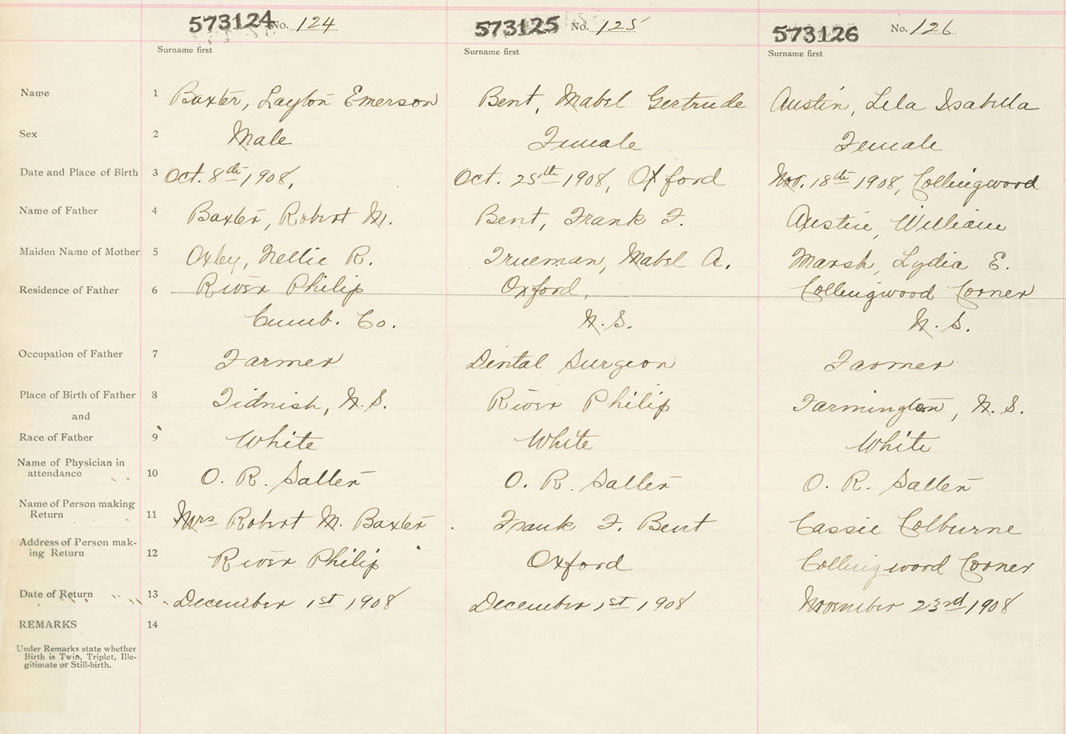 573124 No. 124 573125 No. 125 573126 No. 126
Surname first Surname first Surname first
Name 1 Baxter, Layton Emerson Bent, Mabel Gertrude Austin, Lela Isabella
Sex 2 Male Female Female
Date and Place of Birth 3 Oct. 8th 1908, Oct. 25th 1908, Oxford Nov. 18th 1908, Collingwood
Name of Father 4 Baxter, Robert M. Bent, Frank F. Austin, William
Maiden Name of Mother 5 Oxley, Nellie R. Trueman, Mabel A. Marsh, Lydia E.
Residence of Father 6 River Philip Oxford, Collingwood Corner
Cumb. Co. N.S. N.S.
Occupation of Father 7 Farmer Dental Surgeon Farmer
Place of Birth of Father 8 Tidnish, N.S. River Philip Farmington, N.S.
and
Race of Father 9 White White White
Name of Physician in
attendance 10 O. R. Salter O. R. Salter O. R. Salter
Name of Person making
Return 11 Mrs Robert M. Baxter Frank F. Bent Cassie Colburne
Address of Person mak-
ing Return 12 River Philip Oxford Collingwood Corner
Date of Return 13 December 1st 1908 December 1st 1908 November 23rd 1908
REMARKS 14
Under Remarks state whether
Birth is Twin, Triplet, Ille-
gitimate or Still-birth.